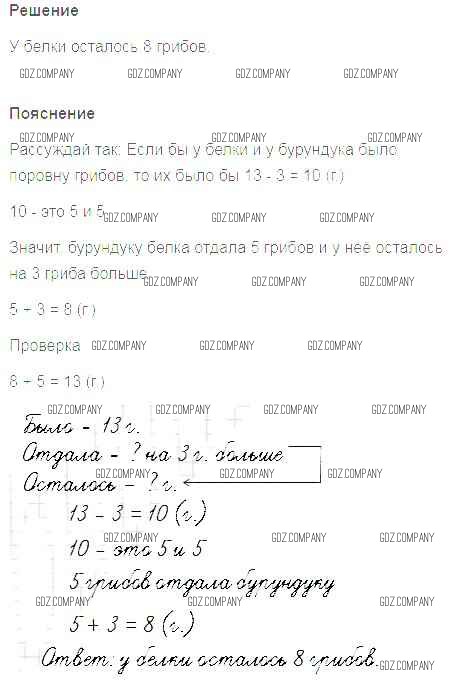 Решение
У белки осталось 8 грибов.
GDZ.COMPANY GDZ.COMPANY GDZ.COMPANY GDZ.COMPANY
Пояснение
GDZ.COMPANY GDZ.COMPANY GDZ.COMPANY
Рассуждай так: Если бы у белки и у бурундука было
поровну грибов, то их было бы 13 - 3 = 10 (г.)
10 - это 5 и 5
GDZ.COMPANY GDZ.COMPANY GDZ.COMPANY
Значит, бурундуку белка отдала 5 грибов и у неё осталось
на 3 гриба больше
GDZ.COMPANY GDZ.COMPANY GDZ.COMPANY
5 + 3 = 8 (г.)
Проверка GDZ.COMPANY GDZ.COMPANY GDZ.COMPANY
8 + 5 = 13 (г.)
GDZ.COMPANY GDZ.COMPANY GDZ.COMPANY GDZ.COMPANY
Было - 13 г.
Отдала - ? на 3 г. больше
GDZ.COMPANY GDZ.COMPANY GDZ.COMPANY
Осталось - ? г.
13 - 3 = 10 (г.)
GDZ.COMPANY GDZ.COMPANY GDZ.COMPANY
10 - это 5 и 5
5 грибов отдала бурундуку
GDZ.COMPANY GDZ.COMPANY GDZ.COMPANY GDZ.COMPANY
5 + 3 = 8 (г.)
Ответ: у белки осталось 8 грибов.
GDZ.COMPANY